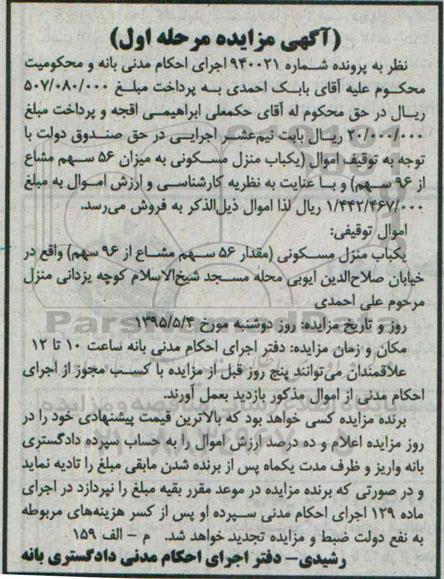 (آگهی مزایده مرحله اول)
نظر به پرونده شماره ۹۴۰۰۲۱ اجرای احکام مدنی بانه و محکومیت
محکوم علیه آقای بابک احمدی به پرداخت مبلغ ۵۰۷/۰۸۰/۰۰۰
ریال در حق محکوم له آقای حکمعلی ابراهیمی اقجه و پرداخت مبلغ
۲۰/۰۰۰/۰۰۰ ریال بابت نیم‌عشر اجرایی در حق صندوق دولت با
توجه به توقیف اموال (یکباب منزل مسکونی به میزان ۵۶ سهم مشاع
از ۹۶ سهم) و با عنایت به نظریه کارشناسی و ارزش اموال به مبلغ
۱/۴۴۲/۴۶۷/۰۰۰ ریال لذا اموال ذیل‌الذکر به فروش می‌رسد.
اموال توقیفی:
یکباب منزل مسکونی (مقدار ۵۶ سهم مشاع از ۹۶ سهم) واقع در
خیابان صلاح‌الدین ایوبی محله مسجد شیخ‌الاسلام کوچه یزدانی منزل
مرحوم علی احمدی
روز و تاریخ مزایده: روز دوشنبه مورخ ۱۳۹۵/۵/۴
مکان و زمان مزایده: دفتر اجرای احکام مدنی بانه ساعت ۱۰ تا ۱۲
علاقمندان می‌توانند پنج روز قبل از مزایده با کسب مجوز از اجرای
احکام مدنی از اموال مذکور بازدید بعمل آورند.
برنده مزایده کسی خواهد بود که بالاترین قیمت پیشنهادی خود را در
روز مزایده اعلام و ده درصد ارزش اموال را به حساب سپرده دادگستری
بانه واریز و ظرف مدت یکماه پس از برنده شدن مابقی مبلغ را تادیه نماید
و در صورتی که برنده مزایده در موعد مقرر بقیه مبلغ را نپردازد در اجرای
ماده ۱۲۹ اجرای احکام مدنی سپرده او پس از کسر هزینه‌های مربوطه
به نفع دولت ضبط و مزایده تجدید خواهد شد. م - الف ۱۵۹
رشیدی- دفتر اجرای احکام مدنی دادگستری بانه
ParsNamadData